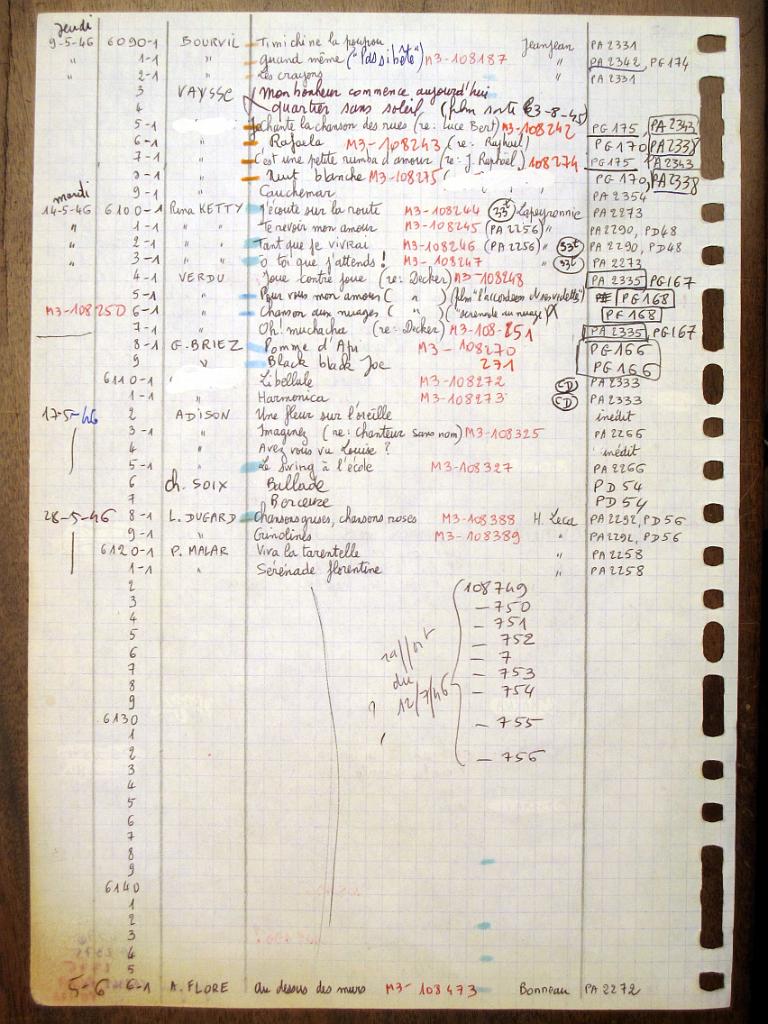 Jeudi
9-5-46 6090-1 BOURVIL Timichine la poupou Jeanjean PA 2331
" 1-1 " quand même ("Pas si bête") M3-108187 " PA 2342, PG 174
" 2-1 " Les crayons " PA 2331
3 VAYSSE Mon bonheur commence aujourd'hui
4 quartier sans soleil (film sorti 63-8-45)
5-1 " Je chante la chanson des rues (re: Luce Bert) M3-108242 PG 175, PA 2343
6-1 " Rafaela M3-108243 (re: Raphaël) PG 170, PA 2338
7-1 " C'est une petite rumba d'amour (re: J. Raphaël) 108274 PG 175, PA 2343
8-1 " Nuit blanche M3-108275 PG 170, PA 2338
9-1 " Cauchemar PA 2354
mardi
14-5-46 6100-1 Rina KETTY J'écoute sur la route M3-108244 33t Lapeyronnie PA 2273
" 1-1 " Te revoir mon amour M3-108245 (PA 2256) " PA 2290, PD 48
" 2-1 " Tant que je vivrai M3-108246 (PA 2256) " 33t PA 2290, PD 48
" 3-1 " O toi que j'attends! M3-108247 " 33t PA 2273
4-1 VERDU Joue contre joue (re: Decker) M3-108248 PA 2335 PG 167
5-1 " Pour vous mon amour ( " ) (film "l'accordéon et ses vedettes") PG 168
M3-108250 6-1 " Chanson aux nuages ( " ) ("serenade au nuage") PG 168
7-1 " Oh! muchacha (re: Decker) M3-108-251 PA 2335, PG 167
8-1 G. BRIEZ Pomme d'Api M3-108270 PG 166
9 " Black black Joe 271 PG 166
6110-1 Libellule M3-108272 CD PA 2333
1-1 Harmonica M3-108273 CD PA 2333
17-5-46 2 ADISON Une fleur sur l'oreille inédit
3-1 " Imaginez (re: Chanteur sans nom) M3-108325 PA 2266
4 " Avez vous vu Louise? inédit
5-1 " Le swing à l'école M3-108327 PA 2266
6 Ch. SOIX Ballade PD 54
7 Berceuse PD 54
28-5-46 8-1 L. DUGARD Chansons grises, chansons roses M3-108388 H. Leca PA 2292, PD 56
9-1 " Crinolines M3-108389 " PA 2292, PD 56
6120-1 P. MALAR Viva la tarentelle " PA 2258
1-1 " Sérénade florentine " PA 2258
2 108749
3 - 750
4 - 751
5 - 752
6 - 7
7 - 753
8 - 754
9
6130 - 755
1
2 - 756
du
12/7/46
?
3
4
5
6
7
8
9
6140
1
2
3
4
5
5-6 6-1 A. FLORE Au dessus des murs M3-108473 Bonneau PA 2272